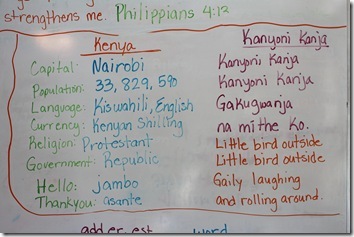 strengthens me. Philippians 4:13
Kenya
Capital: Nairobi
Population: 33,829,590
Language: Kiswahili, English
Currency: Kenyan Shilling
Religion: Protestant
Government: Republic
Hello: jambo
Thankyou: asante
Kanyoni Kanja
Kanyoni Kanja
Kanyoni Kanja
Gakugwanja
na mithe Ko.
Little bird outside
Little bird outside
Gaily laughing
and rolling around.
add er, est word